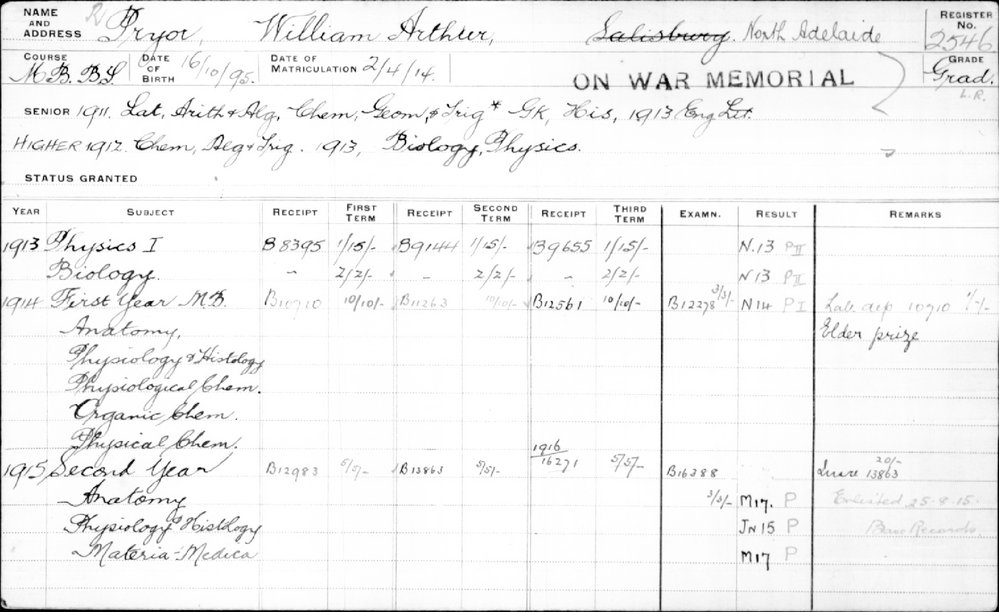 NAME AND ADDRESS Pryor, William Arthur, Salisbury. North Adelaide REGISTER No. 2546
COURSE M.B. B.S. DATE OF BIRTH 16/10/95. DATE OF MATRICULATION 2/4/14. ON WAR MEMORIAL GRADE Grad.
L.R.
SENIOR 1911. Lat, Arith & Alg, Chem, Geom, & Trig* GK, His, 1913 Eng Lit.
HIGHER 1912. Chem, Alg & Trig. 1913, Biology, Physics.
STATUS GRANTED
YEAR SUBJECT RECEIPT FIRST TERM RECEIPT SECOND TERM RECEIPT THIRD TERM EXAMN. RESULT REMARKS
1913 Physics I B8395 1/15/- B9144 1/15/- B9655 1/15/- N.13 P II
Biology. - 2/2/- - 2/2/- - 2/2/- N 13 P II
1914 First Year M.B. B10710 10/10/- B11263 10/10/- B12561 10/10/- B12278 3/3/- N 14 P I Lab. dep 10710 1/1/-
Anatomy, Elder prize
Physiology & Histology
Physiological Chem.
Organic Chem.
Physical Chem.
1915 Second Year B12983 5/5/- B13863 5/5/- 1916/16271 5/5/- B16388 20/- 13863
Anatomy 3/3/- M17. P Enlisted 25-8-15.
Physiology & Histology JN 15 P Base Records
Materia-Medica M17 P